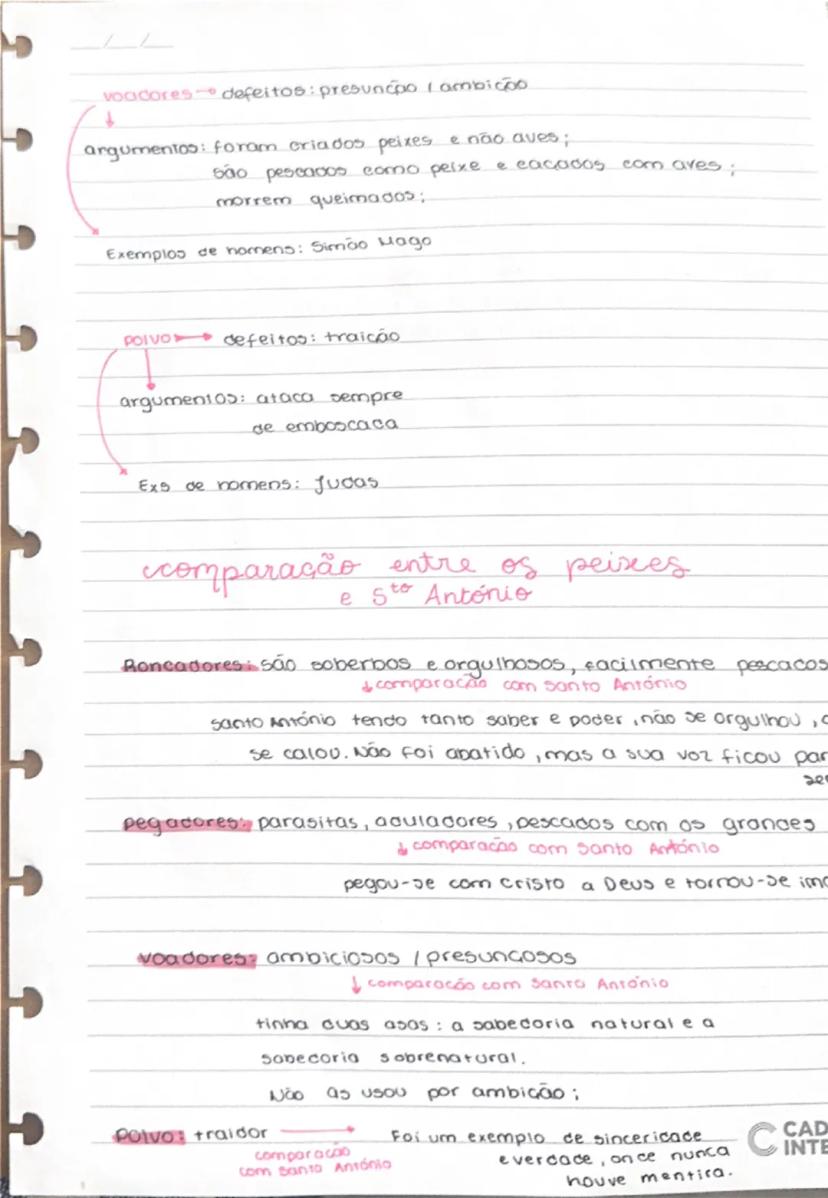 __/__/__
voadores → defeitos: presunção / ambição
argumentos: foram criados peixes e não aves;
são pescados como peixe e caçados com aves;
morrem queimados;
Exemplos de homens: Simão Mago
Polvo → defeitos: traição
argumentos: ataca sempre
de emboscada
Exs de homens: Judas
comparação entre os peixes
e Sto António
Roncadores: são soberbos e orgulhosos, facilmente pescados
↓ comparação com Santo António
Santo António tendo tanto saber e poder, não se orgulhou,
se calou. Não foi abatido, mas a sua voz ficou par
se
pegadores: parasitas, aduladores, pescados com os grandes
↓ comparação com Santo António
pegou-se com Cristo a Deus e tornou-se imo
voadores: ambiciosos / presunçosos
↓ comparação com Santo António
tinha duas asas: a sabedoria natural e a
sabedoria sobrenatural.
Não as usou por ambição;
Polvo: traidor → Foi um exemplo de sinceridade
comparação
com Santo António
e verdade, onde nunca
houve mentira.
CAD
INTE